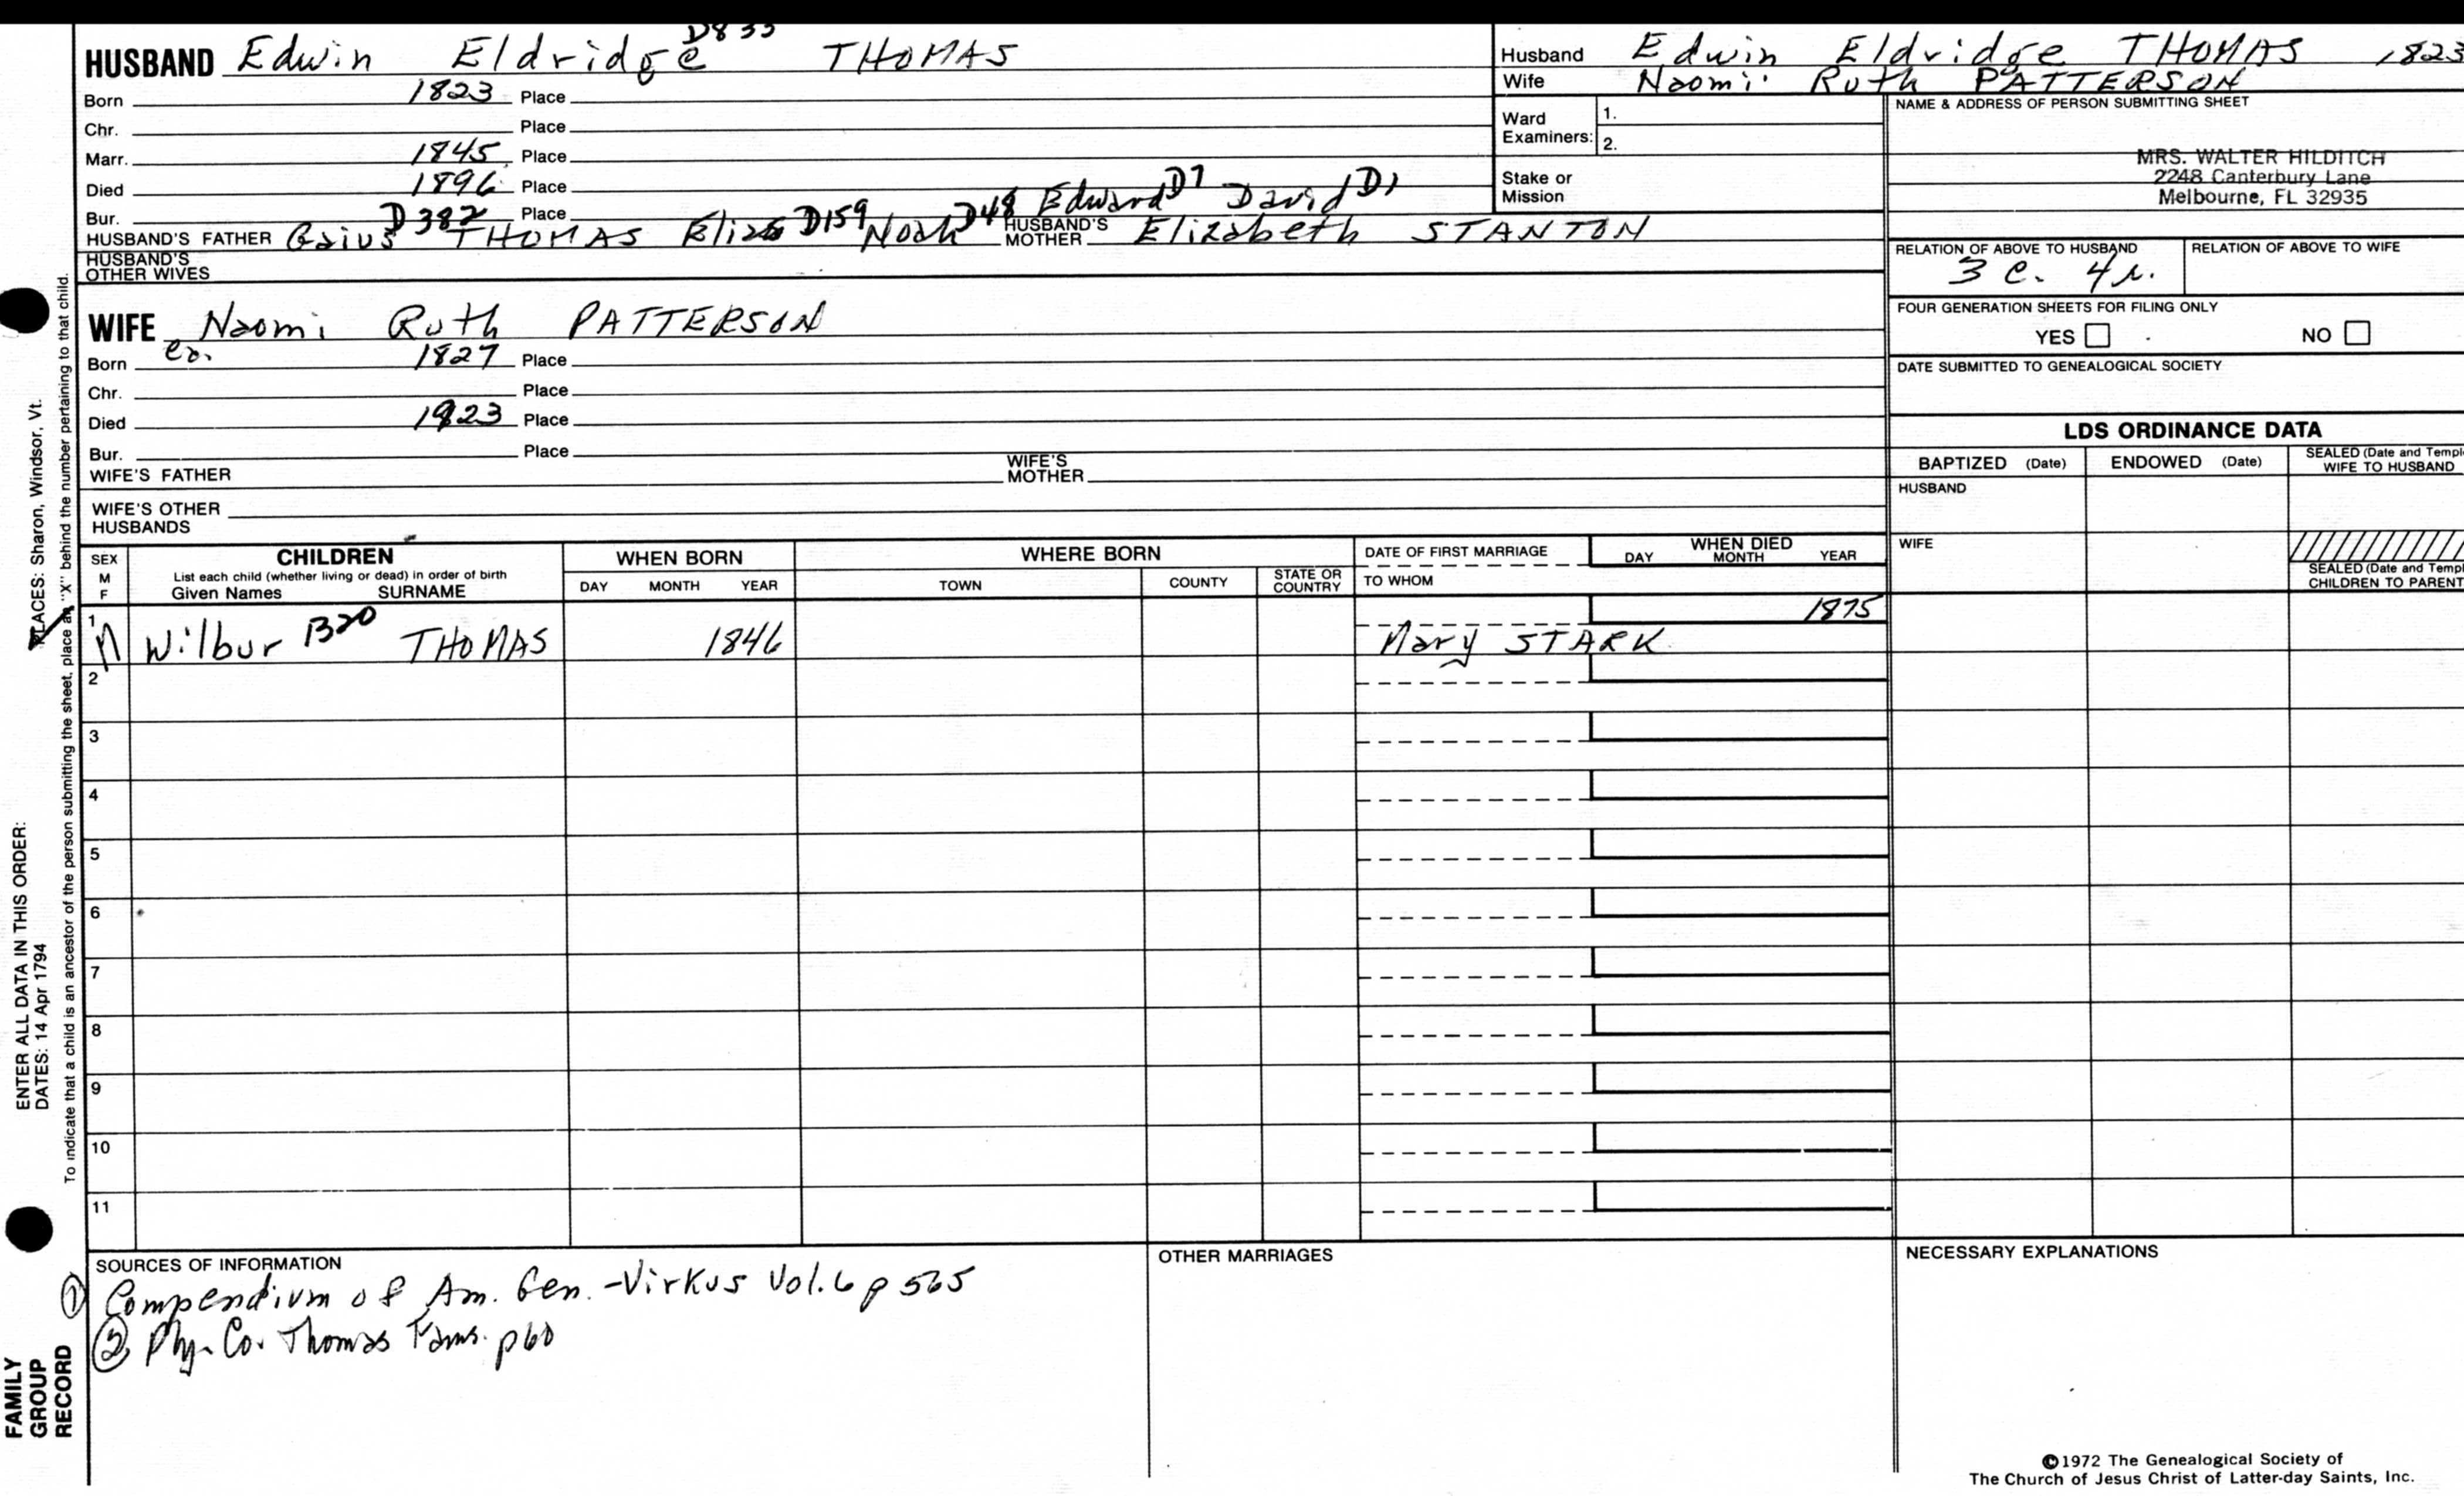 HUSBAND Edwin Eldridge D833 THOMAS
Born 1823 Place
Chr. Place
Marr. 1845 Place
Died 1896 Place
Bur. Place
HUSBAND'S FATHER Gaius D382 THOMAS Elias D159 Noah D48 Edward D7 David D1
HUSBAND'S MOTHER Elizabeth STANTON
HUSBAND'S OTHER WIVES
WIFE Naomi Ruth PATTERSON
Born ca. 1827 Place
Chr. Place
Died 1923 Place
Bur. Place
WIFE'S FATHER WIFE'S MOTHER
WIFE'S OTHER HUSBANDS
Husband Edwin Eldridge THOMAS 1823
Wife Naomi Ruth PATTERSON
Ward Examiners: 1.
2.
Stake or Mission
NAME & ADDRESS OF PERSON SUBMITTING SHEET
MRS. WALTER HILDITCH
2248 Canterbury Lane
Melbourne, FL 32935
RELATION OF ABOVE TO HUSBAND RELATION OF ABOVE TO WIFE
3 c. 4 r.
FOUR GENERATION SHEETS FOR FILING ONLY
YES NO
DATE SUBMITTED TO GENEALOGICAL SOCIETY
LDS ORDINANCE DATA
BAPTIZED (Date) ENDOWED (Date) SEALED (Date and Templ
WIFE TO HUSBAND
HUSBAND
WIFE
SEALED (Date and Templ
CHILDREN TO PARENT
SEX
M
F
CHILDREN
List each child (whether living or dead) in order of birth
Given Names SURNAME
WHEN BORN
DAY MONTH YEAR
WHERE BORN
TOWN COUNTY STATE OR COUNTRY
DATE OF FIRST MARRIAGE
TO WHOM
WHEN DIED
DAY MONTH YEAR
1 M Wilbur B20 THOMAS 1846 Mary STARK 1875
2
3
4
5
6
7
8
9
10
11
SOURCES OF INFORMATION
① Compendium of Am. Gen. - Virkus Vol. 6 p 565
② Ply. Co. Thomas Fams. p60
OTHER MARRIAGES
NECESSARY EXPLANATIONS
©1972 The Genealogical Society of
The Church of Jesus Christ of Latter-day Saints, Inc.
ENTER ALL DATA IN THIS ORDER:
DATES: 14 Apr 1794
PLACES: Sharon, Windsor, Vt.
To indicate that a child is an ancestor of the person submitting the sheet, place an "X" behind the number pertaining to that child.
FAMILY
GROUP
RECORD